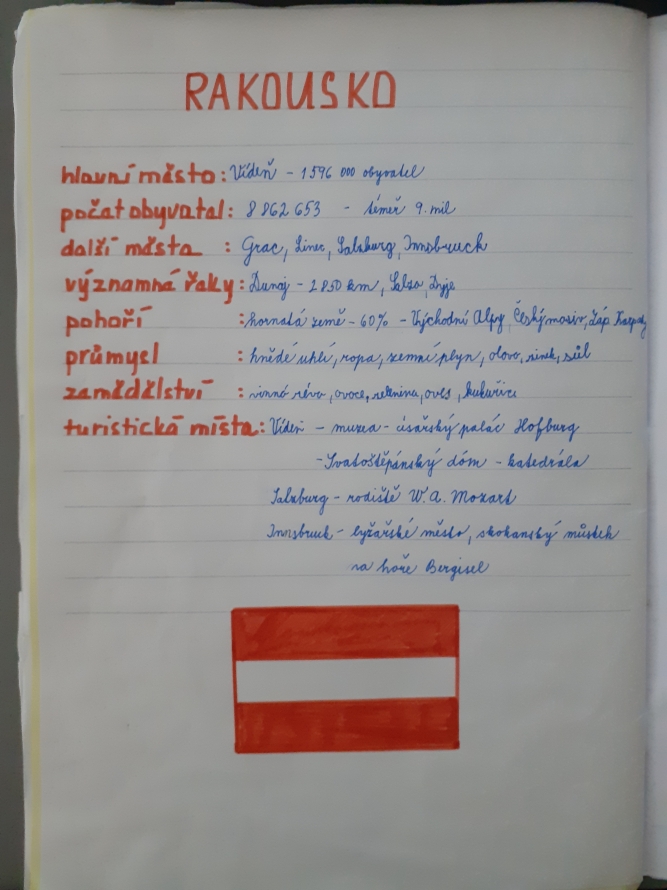 RAKOUSKO
hlavní město: Vídeň - 1 596 000 obyvatel
počat obyvatal: 8 862 653 - téměř 9. mil
další města : Grac, Linec, Salzburg, Innsbruck
významná řaky: Dunaj - 2850 km, Salza, Dyje
pohoří : hornatá země - 60% - Východní Alpy, Český masiv, Záp. Karpaty
průmysl : hnědé uhlí, ropa, zemní plyn, olovo, zinek, sůl
zamědělství : vinná réva, ovoce, zelenina, oves, kukuřice
turistická místa: Vídeň - muzea - císařský palác Hofburg
- Svatoštěpánský dóm - katedrála
Salzburg - rodiště W. A. Mozart
Innsbruck - lyžařské město, skokanský můstek
na hoře Bergisel